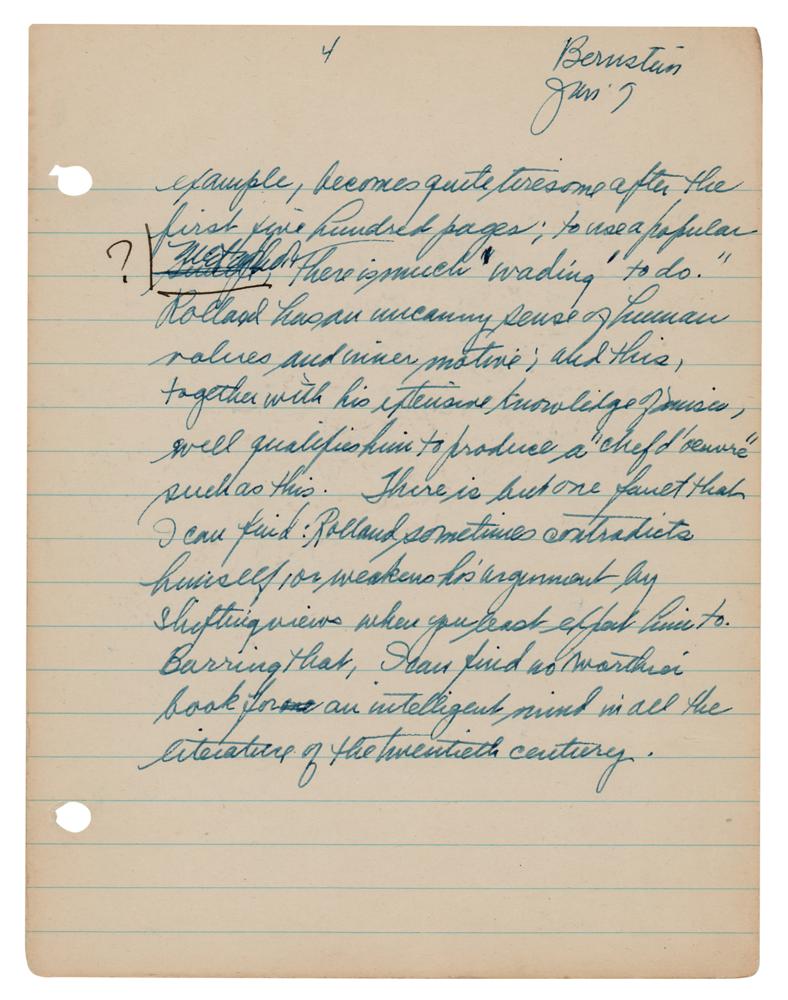 4
Bernstein
Jan 9
example, becomes quite tiresome after the
first five hundred pages; to use a popular
? metaphor, there is much "wading" to do."
Rolland has an uncanny sense of human
values and inner motive; and this,
together with his extensive knowledge of music,
well qualifies him to produce a "chef d'oeuvre"
such as this. There is but one fault that
I can find: Rolland sometimes contradicts
himself, or weakens his argument by
shifting views when you least expect him to.
Barring that, I can find no worthier
book for an intelligent mind in all the
literature of the twentieth century.